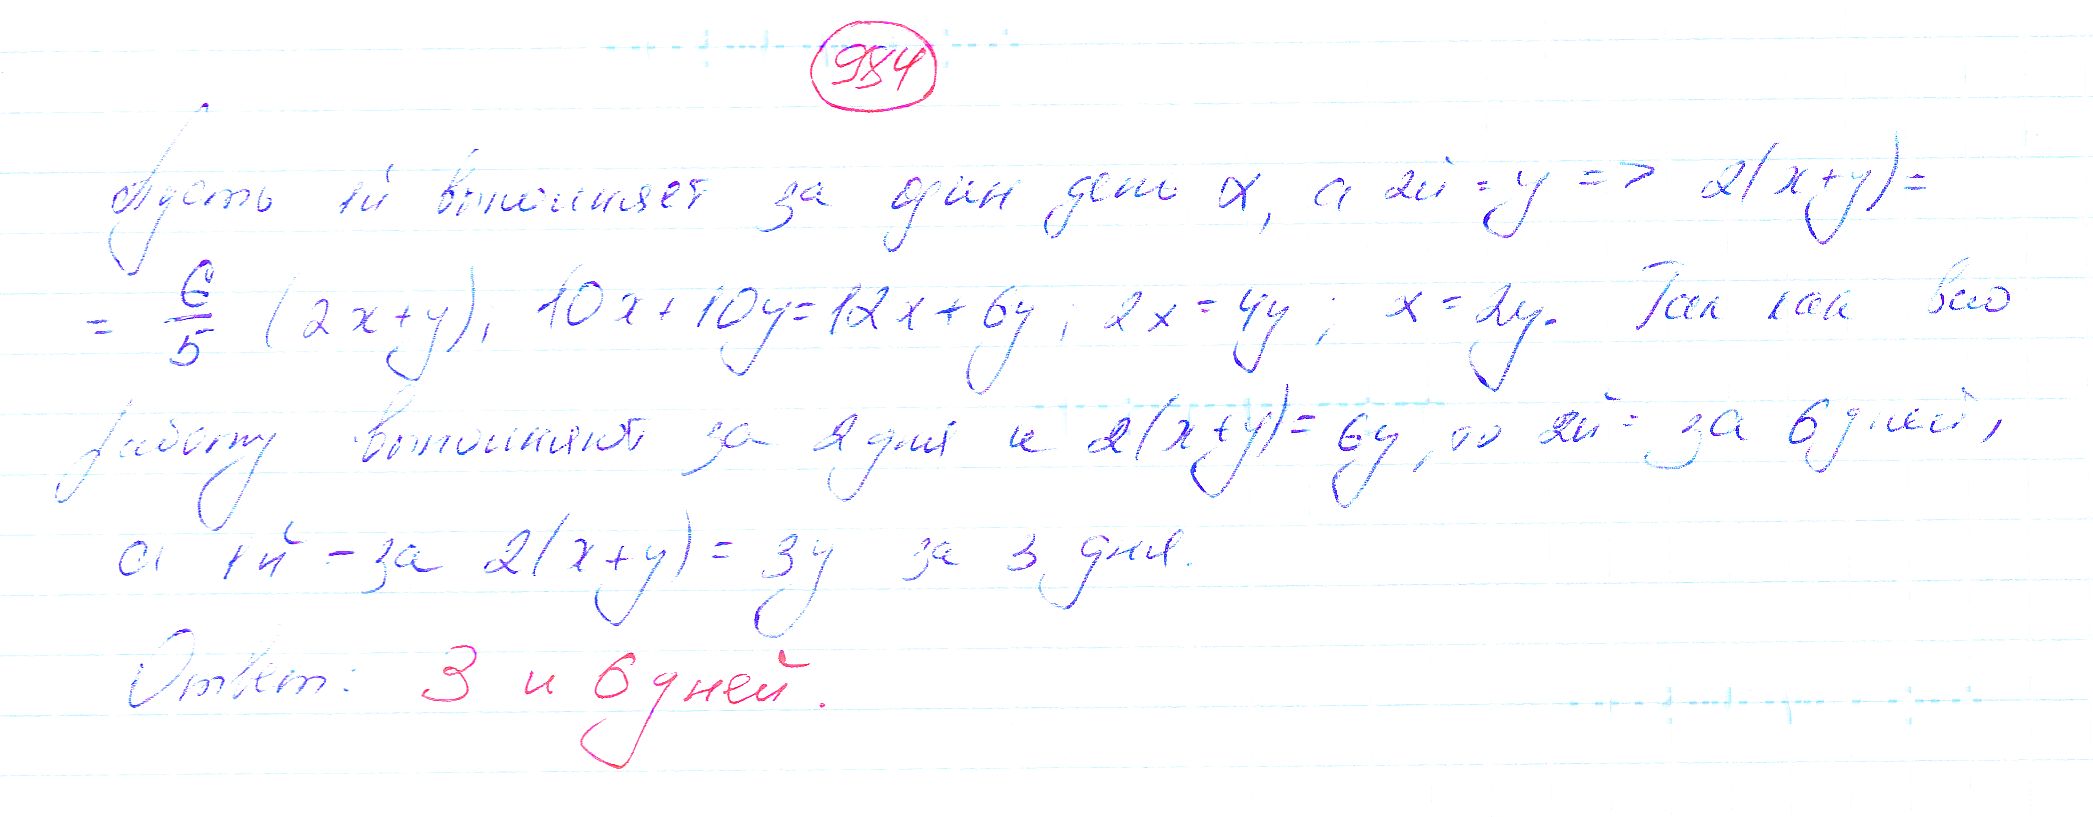 984
Пусть 1й выполняет за один день x, а 2й - y => 2(x+y)=
= 6/5 (2x+y); 10x+10y=12x+6y; 2x=4y; x=2y. Так как всю
работу выполняют за 2 дня и 2(x+y)=6y, то 2й - за 6 дней,
а 1й - за 2(x+y)=3y за 3 дня.
Ответ: 3 и 6 дней.